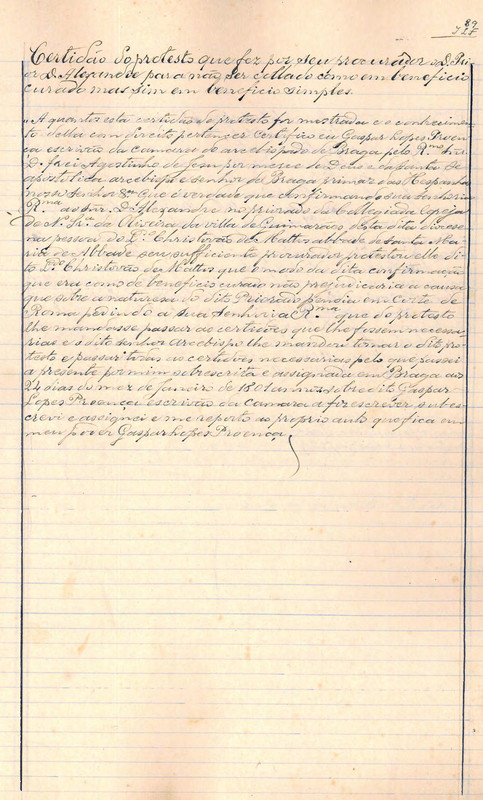 89
Certidão do protesto que fez por seu procurador o D. Pri-
or D. Alexandre para não ser collado como em beneficio
curado mas sim em beneficio simples.
"A quantos esta certidão de protesto for mostrada e o conhecimen-
to della com direito pertencer Certifico eu Gaspar Lopes Proen-
ça escrivão da camara do arcebispado de Braga pelo R.mo Snr.
D. frei Agostinho de Jesus por merce de Deus e da santa Sé
apostolica arcebispo e senhor de Braga primaz das Hespanhas
nosso senhor que é verdade que confirmando sua senhoria
R.ma ao snr. D. Alexandre no priorado da Collegiada Egreja
de N.a Sr.a da Oliveira da villa de Guimarães, desta dita diocese
na pessoa do L.do Christovão de Mattos abbade de Santa Ma-
ria de Abbade seu sufficiente procurador protestou elle di-
to L.do Christovão de Mattos que o modo da dita confirmação
que era como de beneficio curado não prejudicaria a causa
que sobre a natureza do dito Priorado pendia em Corte de
Roma pedindo a sua senhoria R.ma que do protesto
lhe mandasse passar as certidões que lhe fossem necessa-
rias e o dito senhor Arcebispo lhe mandou tomar o dito pro-
testo e passar todas as certidões necessarias pelo que passei
a presente por mim sobrescrita e assignada em Braga aos
24 dias do mez de Janeiro de 1601 annos sobredito Gaspar
Lopes Proença escrivão da Camara a fiz escrever subes-
crevi e assignei e me reporto ao proprio auto que fica em
meu poder Gaspar Lopes Proença